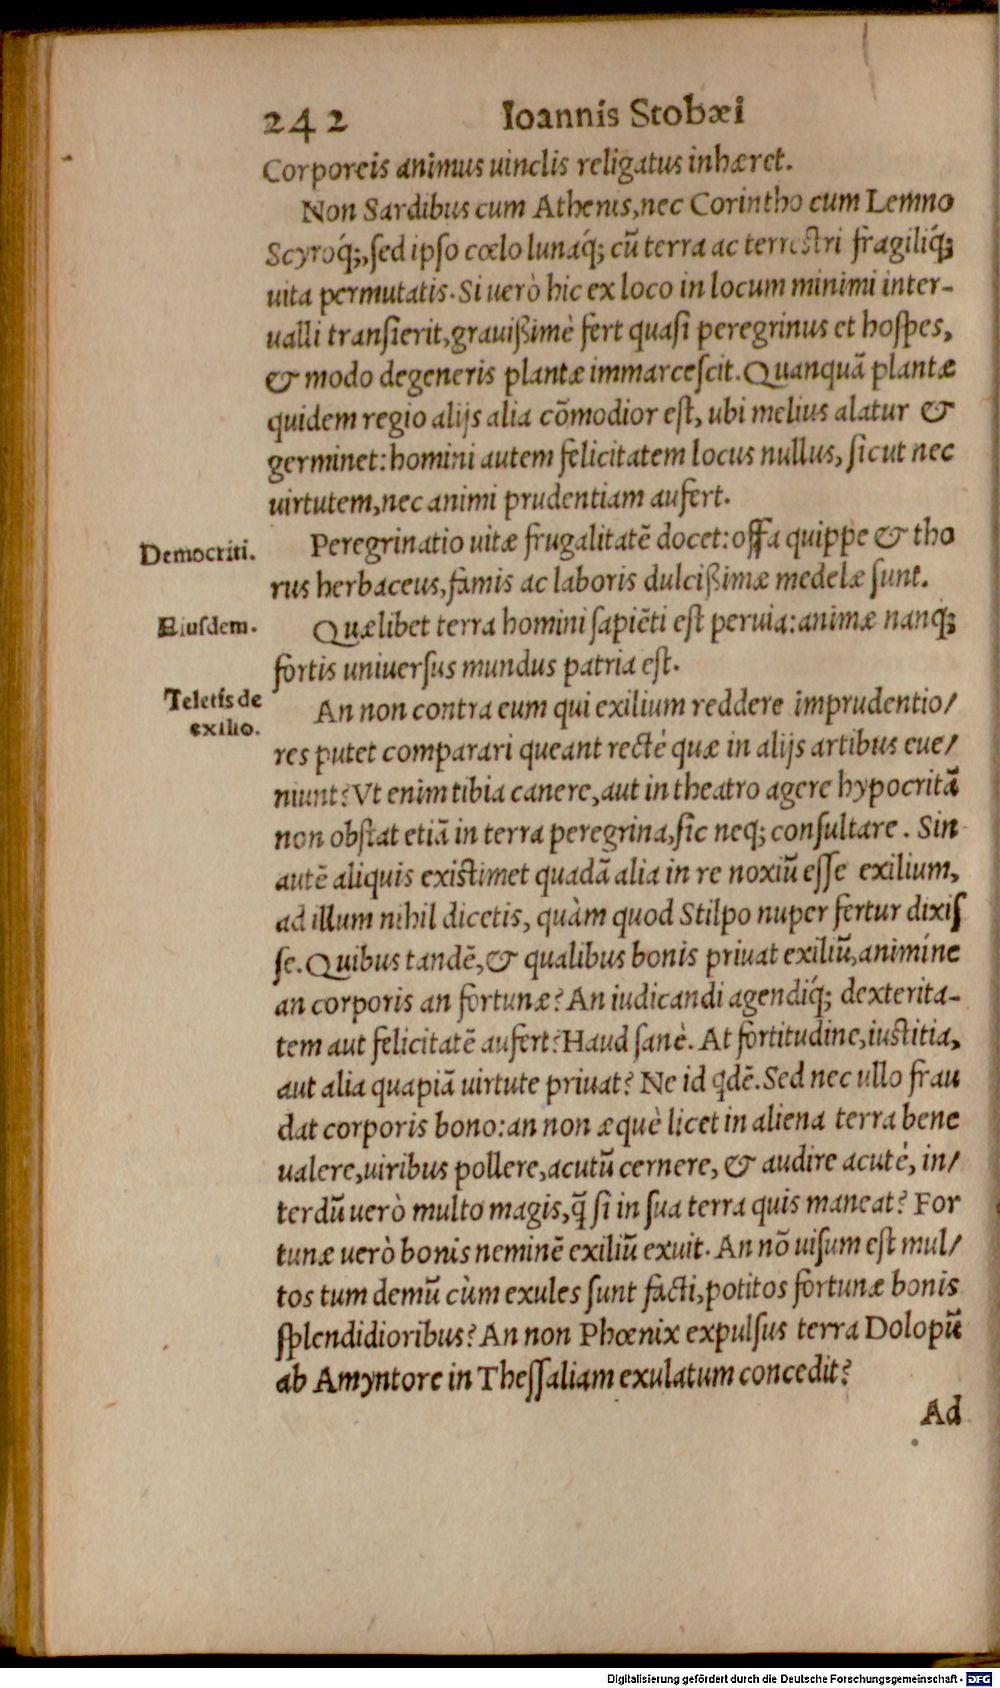 242 Ioannis Stobæi
Corporeis animus uinclis religatus inhæret.
Non Sardibus cum Athenis, nec Corintho cum Lemno
Scyroq́;, sed ipso cœlo lunaq́; cũ terra ac terrestri fragiliq́;
uita permutatis. Si uerò hic ex loco in locum minimi inter-
ualli transierit, grauißimè fert quasi peregrinus et hospes,
& modo degeneris plantæ immarcescit. Quanquã plantæ
quidem regio alijs alia cõmodior est, ubi melius alatur &
germinet: homini autem felicitatem locus nullus, sicut nec
uirtutem, nec animi prudentiam aufert.
Democriti.
Peregrinatio uitæ frugalitatẽ docet: offa quippe & tho
rus herbaceus, famis ac laboris dulcißimæ medelæ sunt.
Eiusdem.
Quælibet terra homini sapiẽti est peruia: animæ nanq;
fortis uniuersus mundus patria est.
Teletis de
exilio.
An non contra eum qui exilium reddere imprudentio/
res putet comparari queant rectè quæ in alijs artibus eue/
niunt? Vt enim tibia canere, aut in theatro agere hypocritã
non obstat etiã in terra peregrina, sic neq; consultare. Sin
autẽ aliquis existimet quadã alia in re noxiũ esse exilium,
ad illum nihil dicetis, quàm quod Stilpo nuper fertur dixis
se. Quibus tandẽ, & qualibus bonis priuat exiliũ, animíne
an corporis an fortunæ? An iudicandi agendiq́; dexterita-
tem aut felicitatẽ aufert? Haud sanè. At fortitudine, iustitia,
aut alia quapiã uirtute priuat? Ne id qdẽ. Sed nec ullo frau
dat corporis bono: an non æquè licet in aliena terra bene
ualere, uiribus pollere, acutũ cernere, & audire acutè, in/
terdũ uerò multo magis, q̃ si in sua terra quis maneat? For
tunæ uerò bonis neminẽ exiliũ exuit. An nõ uisum est mul/
tos tum demũ cùm exules sunt facti, potitos fortunæ bonis
splendidioribus? An non Phœnix expulsus terra Dolopũ
ab Amyntore in Thessaliam exulatum concedit?
Ad
Digitalisierung gefördert durch die Deutsche Forschungsgemeinschaft - DFG